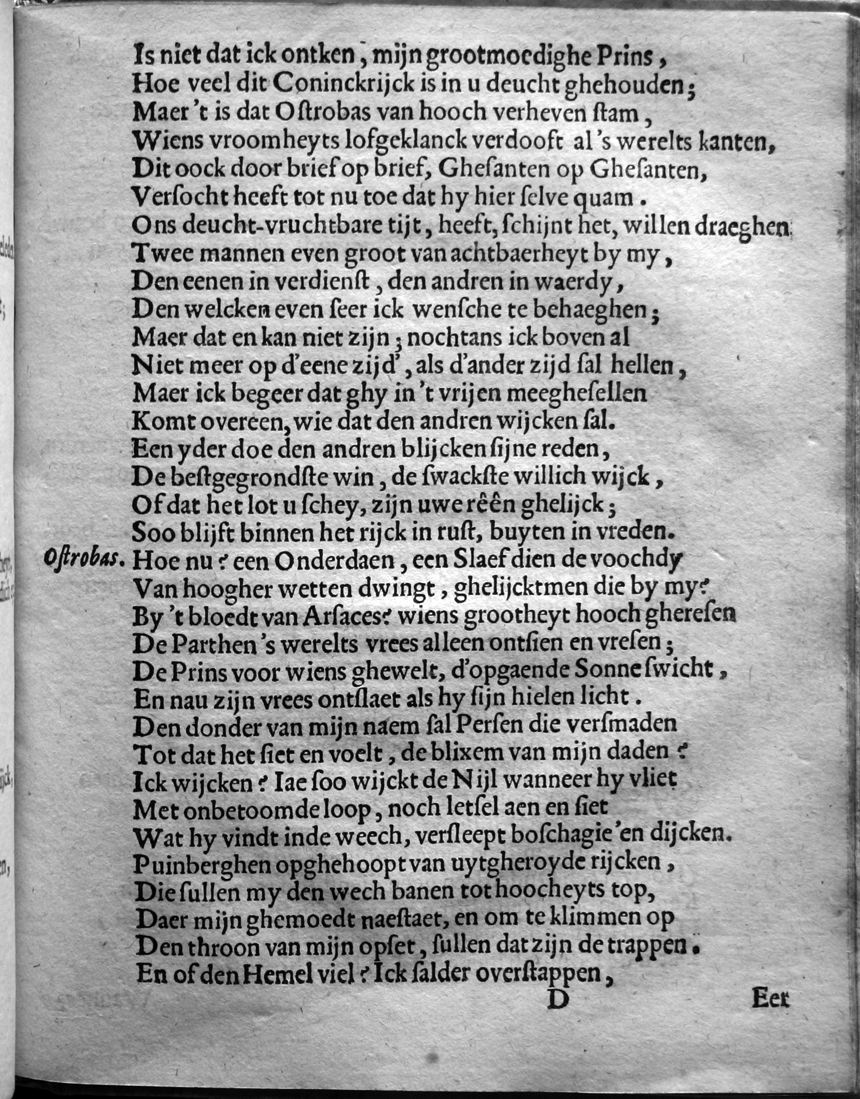 Is niet dat ick ontken, mijn grootmoedighe Prins,
Hoe veel dit Coninckrijck is in u deucht ghehouden;
Maer 't is dat Oſtrobas van hooch verheven ſtam,
Wiens vroomheyts lofgeklanck verdooft al 's werelts kanten,
Dit oock door brief op brief, Gheſanten op Gheſanten,
Verſocht heeft tot nu toe dat hy hier ſelve quam.
Ons deucht-vruchtbare tijt, heeft, ſchijnt het, willen draeghen
Twee mannen even groot van achtbaerheyt by my,
Den eenen in verdienſt, den andren in waerdy,
Den welcken even ſeer ick wenſche te behaeghen;
Maer dat en kan niet zijn; nochtans ick boven al
Niet meer op d'eene zijd', als d'ander zijd ſal hellen,
Maer ick begeer dat ghy in 't vrijen meegheſellen
Komt overeen, wie dat den andren wijcken ſal.
Een yder doe den andren blijcken ſijne reden,
De beſtgegrondſte win, de ſwackſte willich wijck,
Of dat het lot u ſchey, zijn uwe rêên ghelijck;
Soo blijft binnen het rijck in ruſt, buyten in vreden.
Oſtrobas. Hoe nu? een Onderdaen, een Slaef dien de voochdy
Van hoogher wetten dwingt, ghelijcktmen die by my?
By 't bloedt van Arſaces? wiens grootheyt hooch ghereſen
De Parthen 's werelts vrees alleen ontſien en vreſen;
De Prins voor wiens ghewelt, d'opgaende Sonne ſwicht,
En nau zijn vrees ontſlaet als hy ſijn hielen licht.
Den donder van mijn naem ſal Perſen die verſmaden
Tot dat het ſiet en voelt, de blixem van mijn daden?
Ick wijcken? Iae ſoo wijckt de Nijl wanneer hy vliet
Met onbetoomde loop, noch letſel aen en ſiet
Wat hy vindt inde weech, verſleept boſchagie 'en dijcken.
Puinberghen opghehoopt van uytgheroyde rijcken,
Die ſullen my den wech banen tot hoocheyts top,
Daer mijn ghemoedt naeſtaet, en om te klimmen op
Den throon van mijn opſet, ſullen dat zijn de trappen.
En of den Hemel viel? Ick ſalder overſtappen,
D Eer